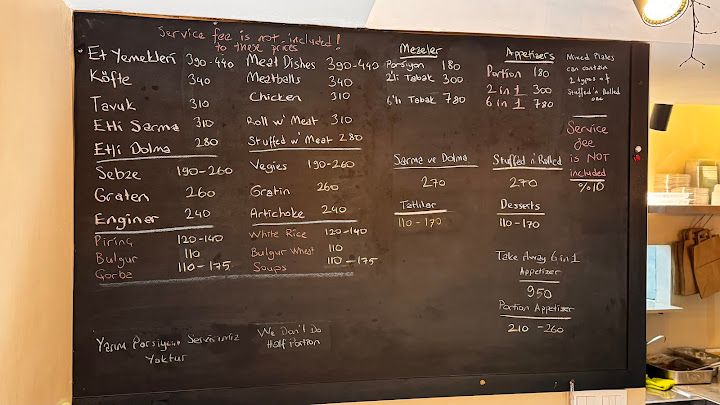 Service fee is not included!
to these prices
Et Yemekleri 390-440
Köfte 340
Tavuk 310
Etli Sarma 310
Etli Dolma 280
Sebze 190-260
Graten 260
Enginar 240
Pirinç 120-140
Bulgur 110
Çorba 110-175
Meat Dishes 390-440
Meatballs 340
Chicken 310
Roll w' Meat 310
Stuffed w' Meat 280
Vegies 190-260
Gratin 260
Artichoke 240
White Rice 120-140
Bulgur Wheat 110
Soups 110-175
Mezeler
Porsiyon 180
2'li Tabak 300
6'lı Tabak 780
Appetizers
Portion 180
2 in 1 300
6 in 1 780
Mixed Plates
can contain
2 types of
Stuffed n Rolled
one
Service
fee
is NOT
included
%10
Sarma ve Dolma
270
Tatlılar
110-170
Stuffed n' Rolled
270
Desserts
110-170
Take Away 6 in 1
Appetizer
950
Portion Appetizer
210-260
Yarım Porsiyon Servisimiz
Yoktur
We Don't Do
Half Portion